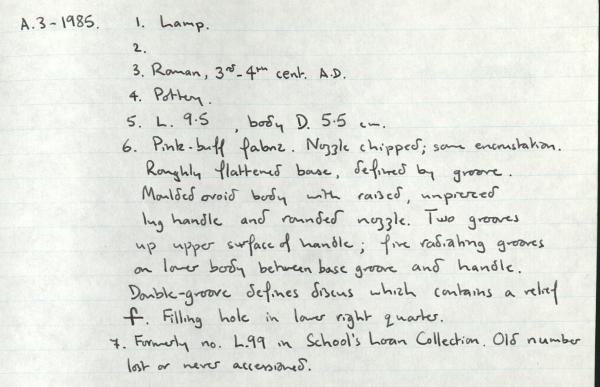 A.3-1985. 1. Lamp.
2.
3. Roman, 3rd-4th cent. A.D.
4. Pottery.
5. L. 9.5 , body D. 5.5 cm.
6. Pink-buff fabric. Nozzle chipped; some encrustation.
Roughly flattened base, defined by groove.
Moulded ovoid body with raised, unpierced
lug handle and rounded nozzle. Two grooves
up upper surface of handle; five radiating grooves
on lower body between base groove and handle.
Double-groove defines discus which contains a relief
. Filling hole in lower right quarter.
7. Formerly no. L.99 in School's Loan Collection. Old number
lost or never accessioned.